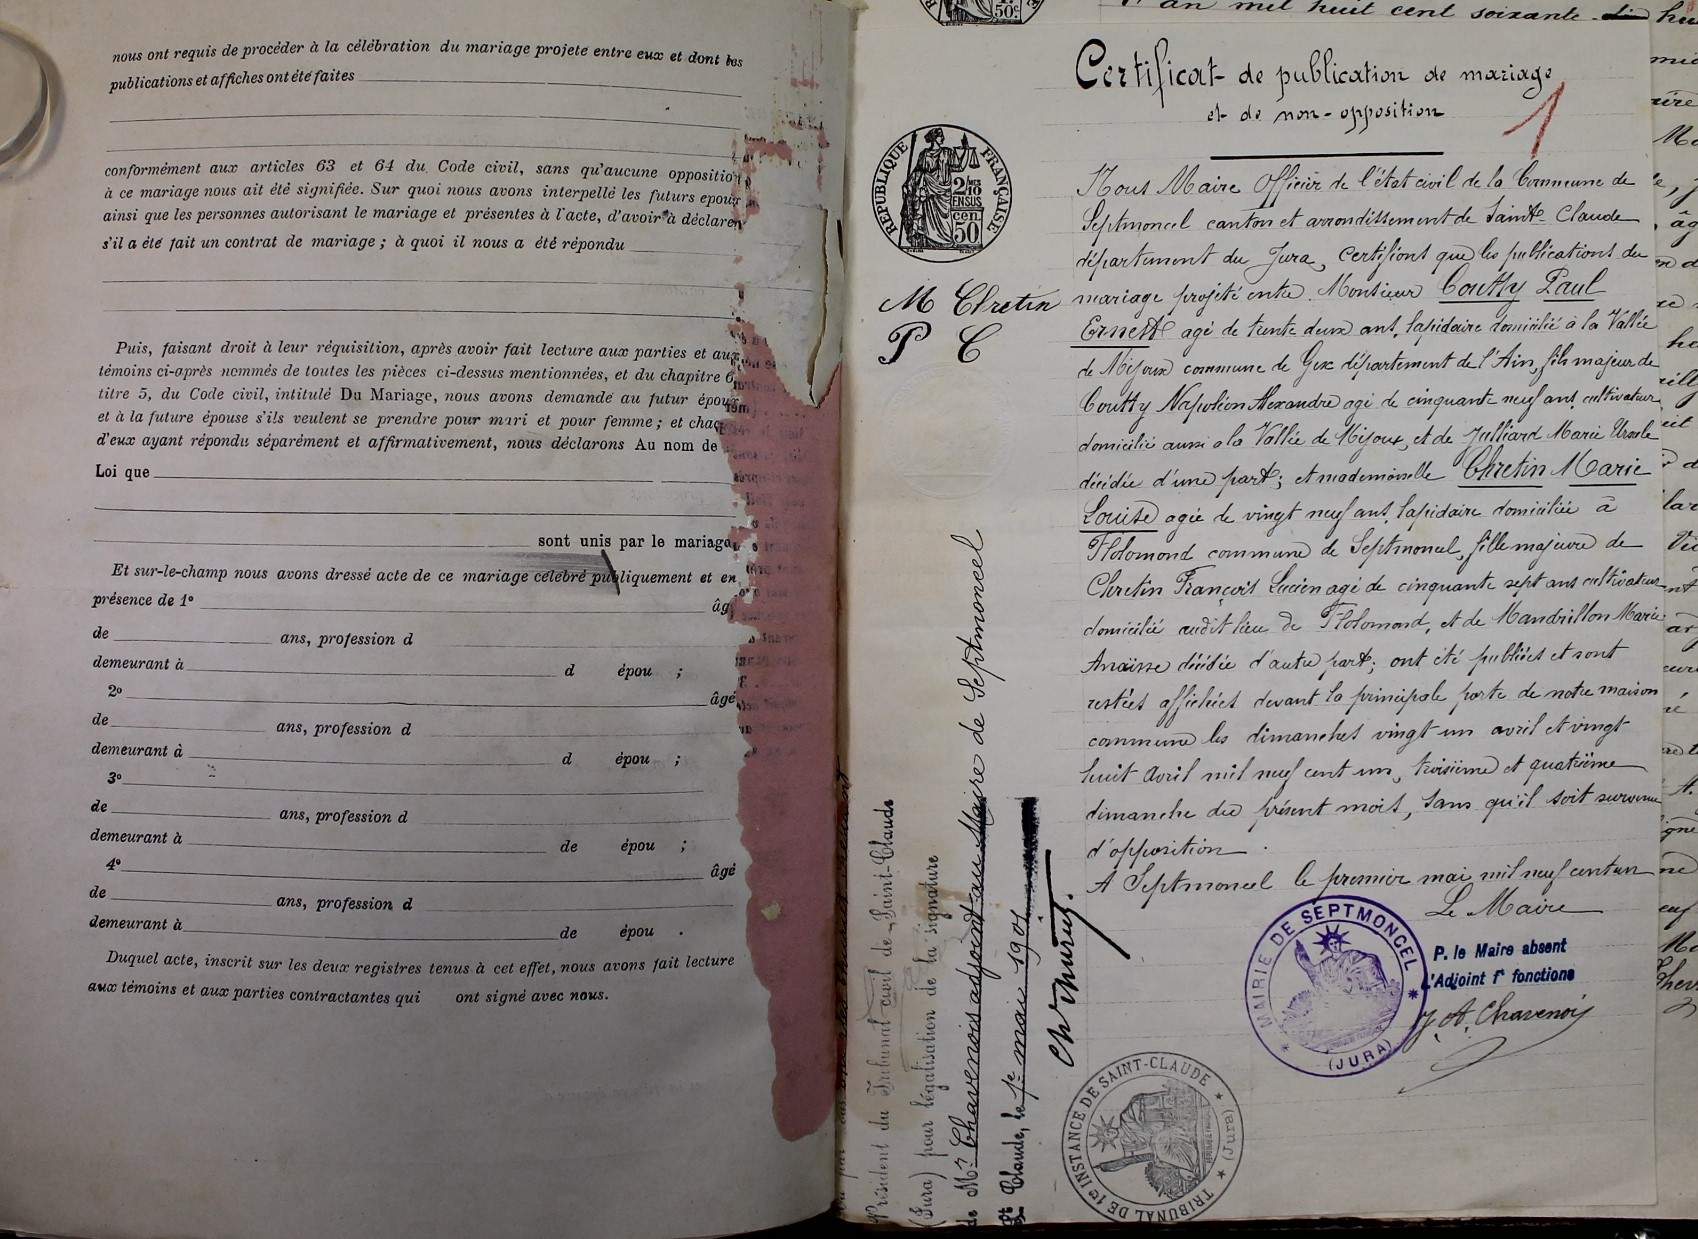 nous ont requis de procéder à la célébration du mariage projeté entre eux et dont les
publications et affiches ont été faites
conformément aux articles 63 et 64 du Code civil, sans qu'aucune opposition
à ce mariage nous ait été signifiée. Sur quoi nous avons interpellé les futurs epoux
ainsi que les personnes autorisant le mariage et présentes à l'acte, d'avoir à déclarer
s'il a été fait un contrat de mariage ; à quoi il nous a été répondu
Puis, faisant droit à leur réquisition, après avoir fait lecture aux parties et aux
témoins ci-après nommés de toutes les pièces ci-dessus mentionnées, et du chapitre 6,
titre 5, du Code civil, intitulé Du Mariage, nous avons demandé au futur époux
et à la future épouse s'ils veulent se prendre pour mari et pour femme ; et chac
d'eux ayant répondu séparément et affirmativement, nous déclarons Au nom de
Loi que
sont unis par le mariage
Et sur-le-champ nous avons dressé acte de ce mariage célébré publiquement et en
présence de 1º âg
de ans, profession d
demeurant à d épou ;
2º âgé
de ans, profession d
demeurant à d épou ;
3º
de ans, profession d
demeurant à de épou ;
4º âgé
de ans, profession d
demeurant à de épou .
Duquel acte, inscrit sur les deux registres tenus à cet effet, nous avons fait lecture
aux témoins et aux parties contractantes qui ont signé avec nous.
50c
an mil huit cent soixante
Certificat de publication de mariage
et de non-opposition
1
RÉPUBLIQUE FRANÇAISE
2/10 EN SUS
50 cen
M Chretin
P C
Nous Maire Officier de l'état civil de la Commune de
Septmoncel canton et arrondissement de Saint-Claude
département du Jura, certifions que les publications du
mariage projeté entre Monsieur Coutty Paul
Ernest agé de trente deux ans, lapidaire domicilié à la Vallée
de Mijoux commune de Gex département de l'Ain, fils majeur de
Coutty Napoléon Alexandre agé de cinquante neuf ans, cultivateur
domicilié aussi à la Vallée de Mijoux, et de Julliard Marie Ursule
décédée d'une part ; et mademoiselle Chretin Marie
Louise agée de vingt neuf ans, lapidaire domiciliée à
Tholomond commune de Septmoncel, fille majeure de
Chretin François Lucien agé de cinquante sept ans cultivateur
domicilié audit lieu de Tholomond, et de Mandrillon Marie
Anaïsse décédée d'autre part ; ont été publiées et sont
restées affichées devant la principale porte de notre maison
commune les dimanches vingt un avril et vingt
huit avril mil neuf cent un, troisième et quatrième
dimanche du présent mois, sans qu'il soit survenu
d'opposition.
A Septmoncel le premier mai mil neuf cent un
Le Maire
P. le Maire absent
l'Adjoint ft fonctions
J. A. Chavenois
MAIRIE DE SEPTMONCEL
(JURA)
Président du Tribunal civil de Saint-Claude
(Jura) pour légalisation de la signature
de Mr Chavenois adjoint au Maire de Septmoncel
St Claude, le 1er mai 1901
TRIBUNAL DE 1re INSTANCE DE SAINT-CLAUDE
(Jura)